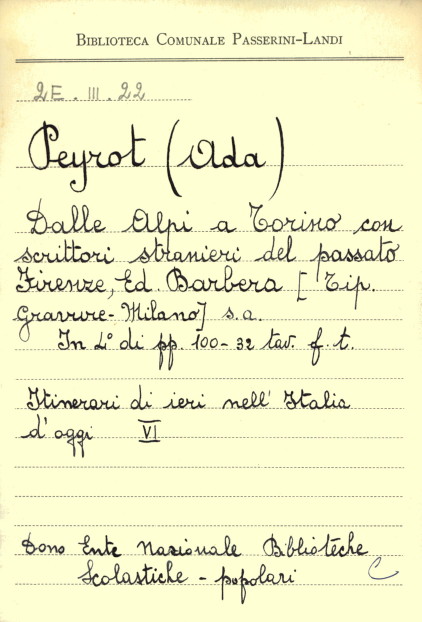 BIBLIOTECA COMUNALE PASSERINI-LANDI
2E. III. 22
Peyrot (Ada)
Dalle Alpi a Torino con
scrittori stranieri del passato
Firenze, Ed. Barbera [Tip.
Gravure-Milano] s.a.
In 4° di pp. 100-32 tav. f. t.
Itinerari di ieri nell'Italia
d'oggi VI
Dono Ente Nazionale Biblioteche
Scolastiche - popolari
C